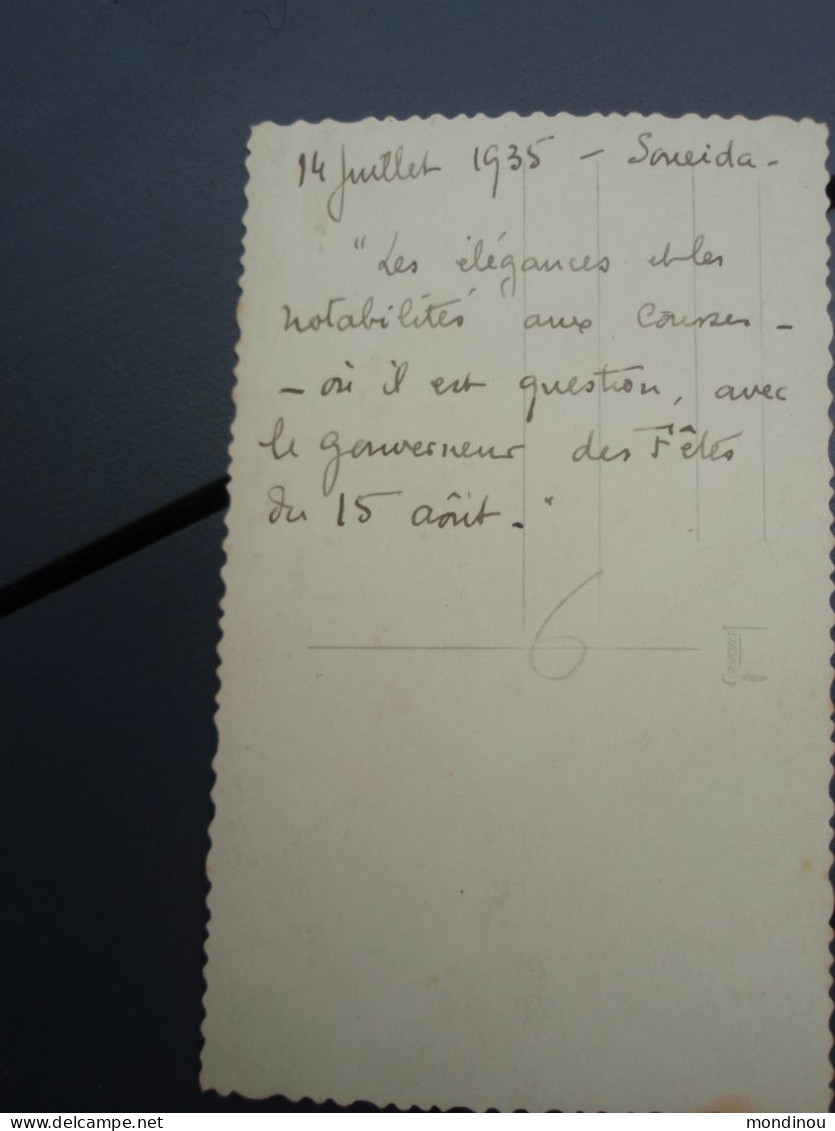 14 Juillet 1935 - Soueida -
"Les élégances et les
notabilités" aux Courses -
- où il est question, avec
le gouverneur des Fêtes
du 15 aôut. "
6
Gevaert
delcampe.net
mondinou